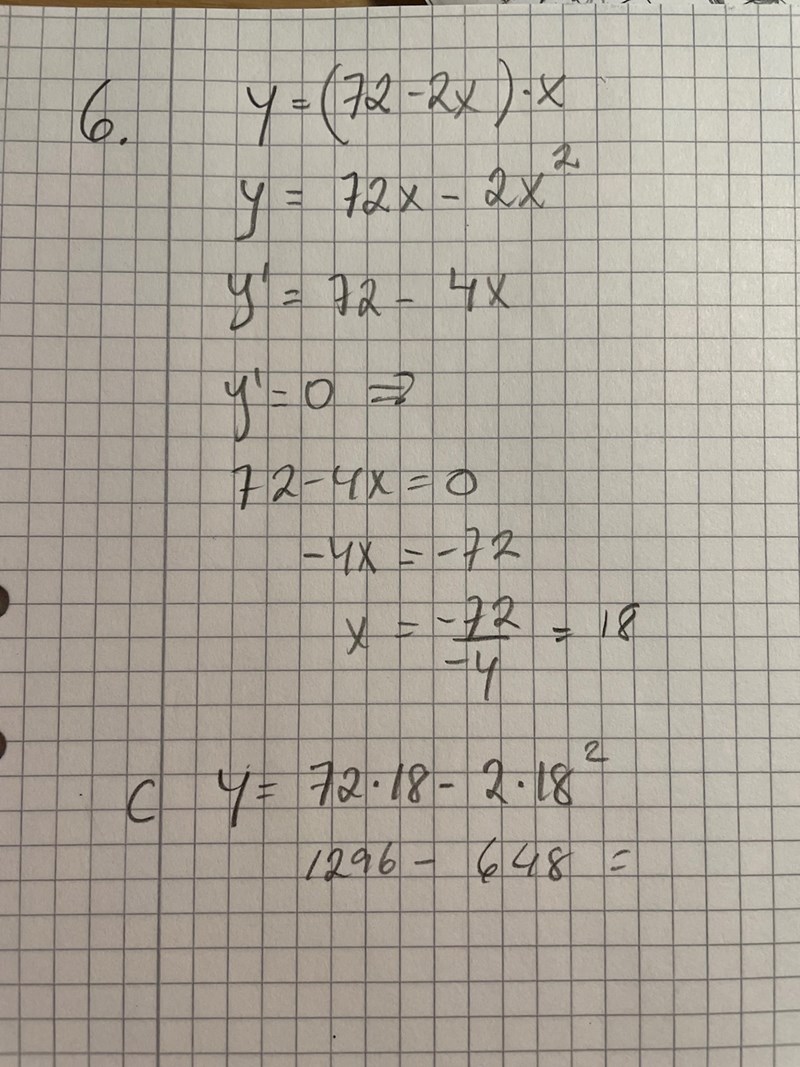 6. y = (72 - 2x) · x
y = 72x - 2x²
y' = 72 - 4x
y' = 0 ⇒
72 - 4x = 0
-4x = -72
x = -72/-4 = 18
C y = 72 · 18 - 2 · 18²
1296 - 648 =